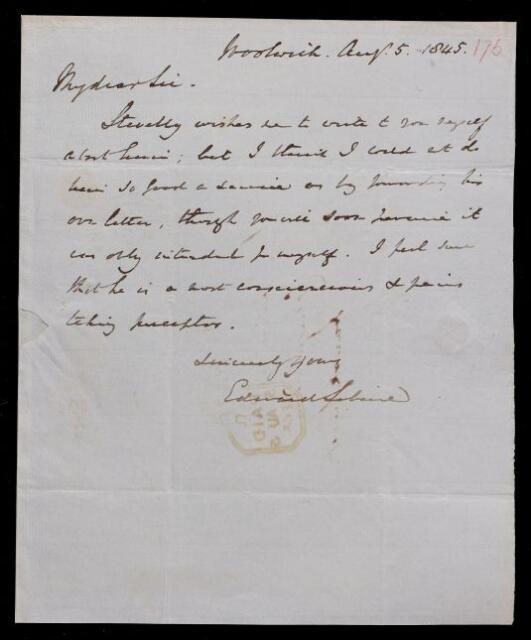 Woolwich. Augt. 5. 1845. 176
My dear Sir.
Stevelly wishes me to write to you myself
about him; but I think I could not do
him so good a service as by forwarding his
own letter, though you will soon perceive it
was only intended for myself. I feel sure
that he is a most conscientious & pains
taking preceptor.
Sincerely Yours
Edward Sabine